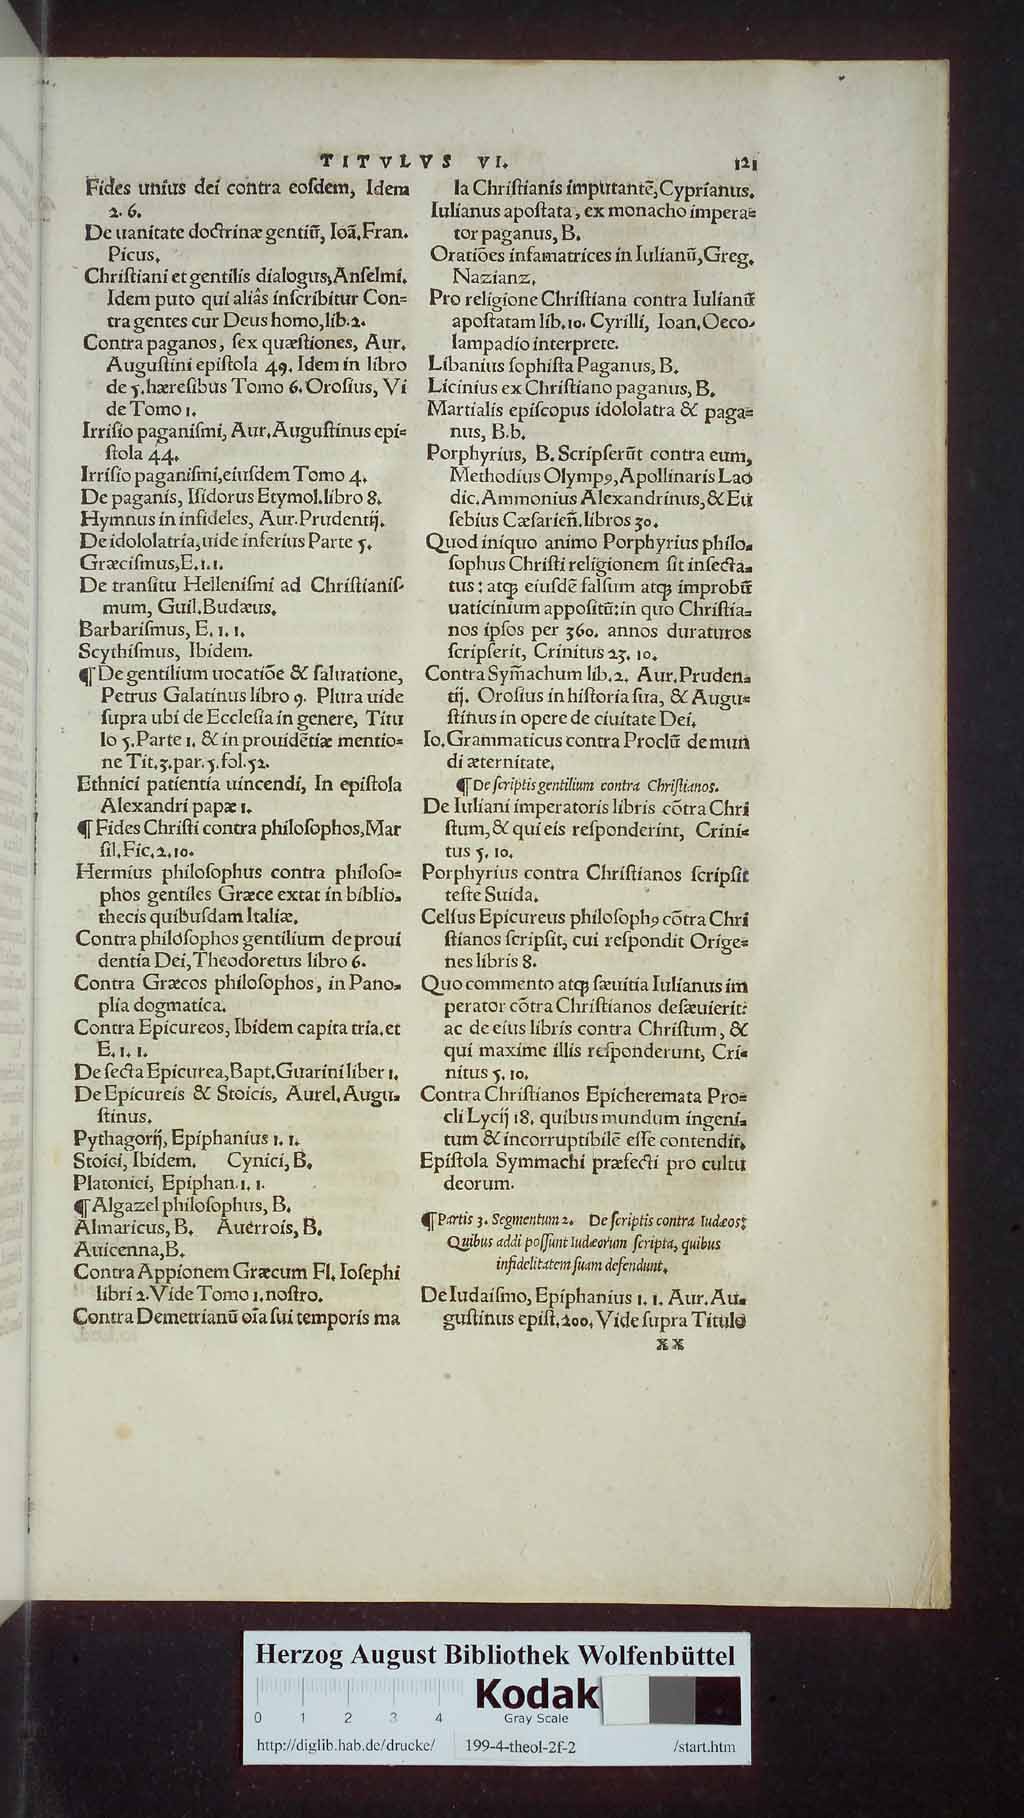 TITVLVS VI. 121
Fides unius dei contra eosdem, Idem
2. 6.
De uanitate doctrinæ gentiū, Ioā. Fran.
Picus.
Christiani et gentilis dialogus, Anselmi.
Idem puto qui aliâs inscribitur Con=
tra gentes cur Deus homo, lib. 2.
Contra paganos, sex quæstiones, Aur.
Augustini epistola 49. Idem in libro
de 5. hæresibus Tomo 6. Orosius, Vi
de Tomo 1.
Irrisio paganismi, Aur. Augustinus epi=
stola 44.
Irrisio paganismi, eiusdem Tomo 4.
De paganis, Isidorus Etymol. libro 8.
Hymnus in infideles, Aur. Prudentij.
De idololatria, uide inferius Parte 5.
Græcismus, E. 1. 1.
De transitu Hellenismi ad Christianis-
mum, Guil. Budæus.
Barbarismus, E. 1. 1.
Scythismus, Ibidem.
¶ De gentilium uocatiōe & saluatione,
Petrus Galatinus libro 9. Plura uide
supra ubi de Ecclesia in genere, Titu
lo 5. Parte 1. & in prouidētiæ mentio=
ne Tit. 3. par. 5. fol. 52.
Ethnici patientia uincendi, In epistola
Alexandri papæ 1.
¶ Fides Christi contra philosophos, Mar
sil. Fic. 2. 10.
Hermius philosophus contra philoso=
phos gentiles Græce extat in biblio-
thecis quibusdam Italiæ.
Contra philosophos gentilium de proui
dentia Dei, Theodoretus libro 6.
Contra Græcos philosophos, in Pano-
plia dogmatica.
Contra Epicureos, Ibidem capita tria. et
E. 1. 1.
De secta Epicurea, Bapt. Guarini liber 1.
De Epicureis & Stoicis, Aurel. Augu-
stinus.
Pythagorij, Epiphanius 1. 1.
Stoici, Ibidem. Cynici, B.
Platonici, Epiphan. 1. 1.
¶ Algazel philosophus, B.
Almaricus, B. Auerrois, B.
Auicenna, B.
Contra Appionem Græcum Fl. Iosephi
libri 2. Vide Tomo 1. nostro.
Contra Demetrianū oīa sui temporis ma
la Christianis imputantē, Cyprianus.
Iulianus apostata, ex monacho impera=
tor paganus, B.
Oratiōes infamatrices in Iulianū, Greg.
Nazianz.
Pro religione Christiana contra Iulianū
apostatam lib. 10. Cyrilli, Ioan. Oeco-
lampadio interprete.
Libanius sophista Paganus, B.
Licinius ex Christiano paganus, B.
Martialis episcopus idololatra & paga=
nus, B. b.
Porphyrius, B. Scripserūt contra eum,
Methodius Olympꝰ, Apollinaris Lao
dic. Ammonius Alexandrinus, & Eu
sebius Cæsarieñ. libros 30.
Quod iniquo animo Porphyrius philo-
sophus Christi religionem sit insecta-
tus: atqꝫ eiusdē falsum atqꝫ improbū
uaticinium appositū: in quo Christia=
nos ipsos per 360. annos duraturos
scripserit, Crinitus 23. 10.
Contra Sym̃achum lib. 2. Aur. Pruden-
tij. Orosius in historia sua, & Augu=
stinus in opere de ciuitate Dei.
Io. Grammaticus contra Proclū de mun
di æternitate.
¶ De scriptis gentilium contra Christianos.
De Iuliani imperatoris libris cōtra Chri
stum, & qui eis responderint, Crini=
tus 5. 10.
Porphyrius contra Christianos scripsit
teste Suida.
Celsus Epicureus philosophꝰ cōtra Chri
stianos scripsit, cui respondit Orige=
nes libris 8.
Quo commento atqꝫ sæuitia Iulianus im
perator cōtra Christianos desæuierit:
ac de eius libris contra Christum, &
qui maxime illis responderunt, Cri-
nitus 5. 10.
Contra Christianos Epicheremata Pro=
cli Lycij 18. quibus mundum ingeni-
tum & incorruptibilē esse contendit.
Epistola Symmachi præfecti pro cultu
deorum.
¶ Partis 3. Segmentum 2. De scriptis contra Iudæos:
Quibus addi possunt Iudæorum scripta, quibus
infidelitatem suam defendunt.
De Iudaismo, Epiphanius 1. 1. Aur. Au-
gustinus epist. 200. Vide supra Titulo
XX
Herzog August Bibliothek Wolfenbüttel
Kodak
Gray Scale
0 1 2 3 4
http://diglib.hab.de/drucke/ 199-4-theol-2f-2 /start.htm